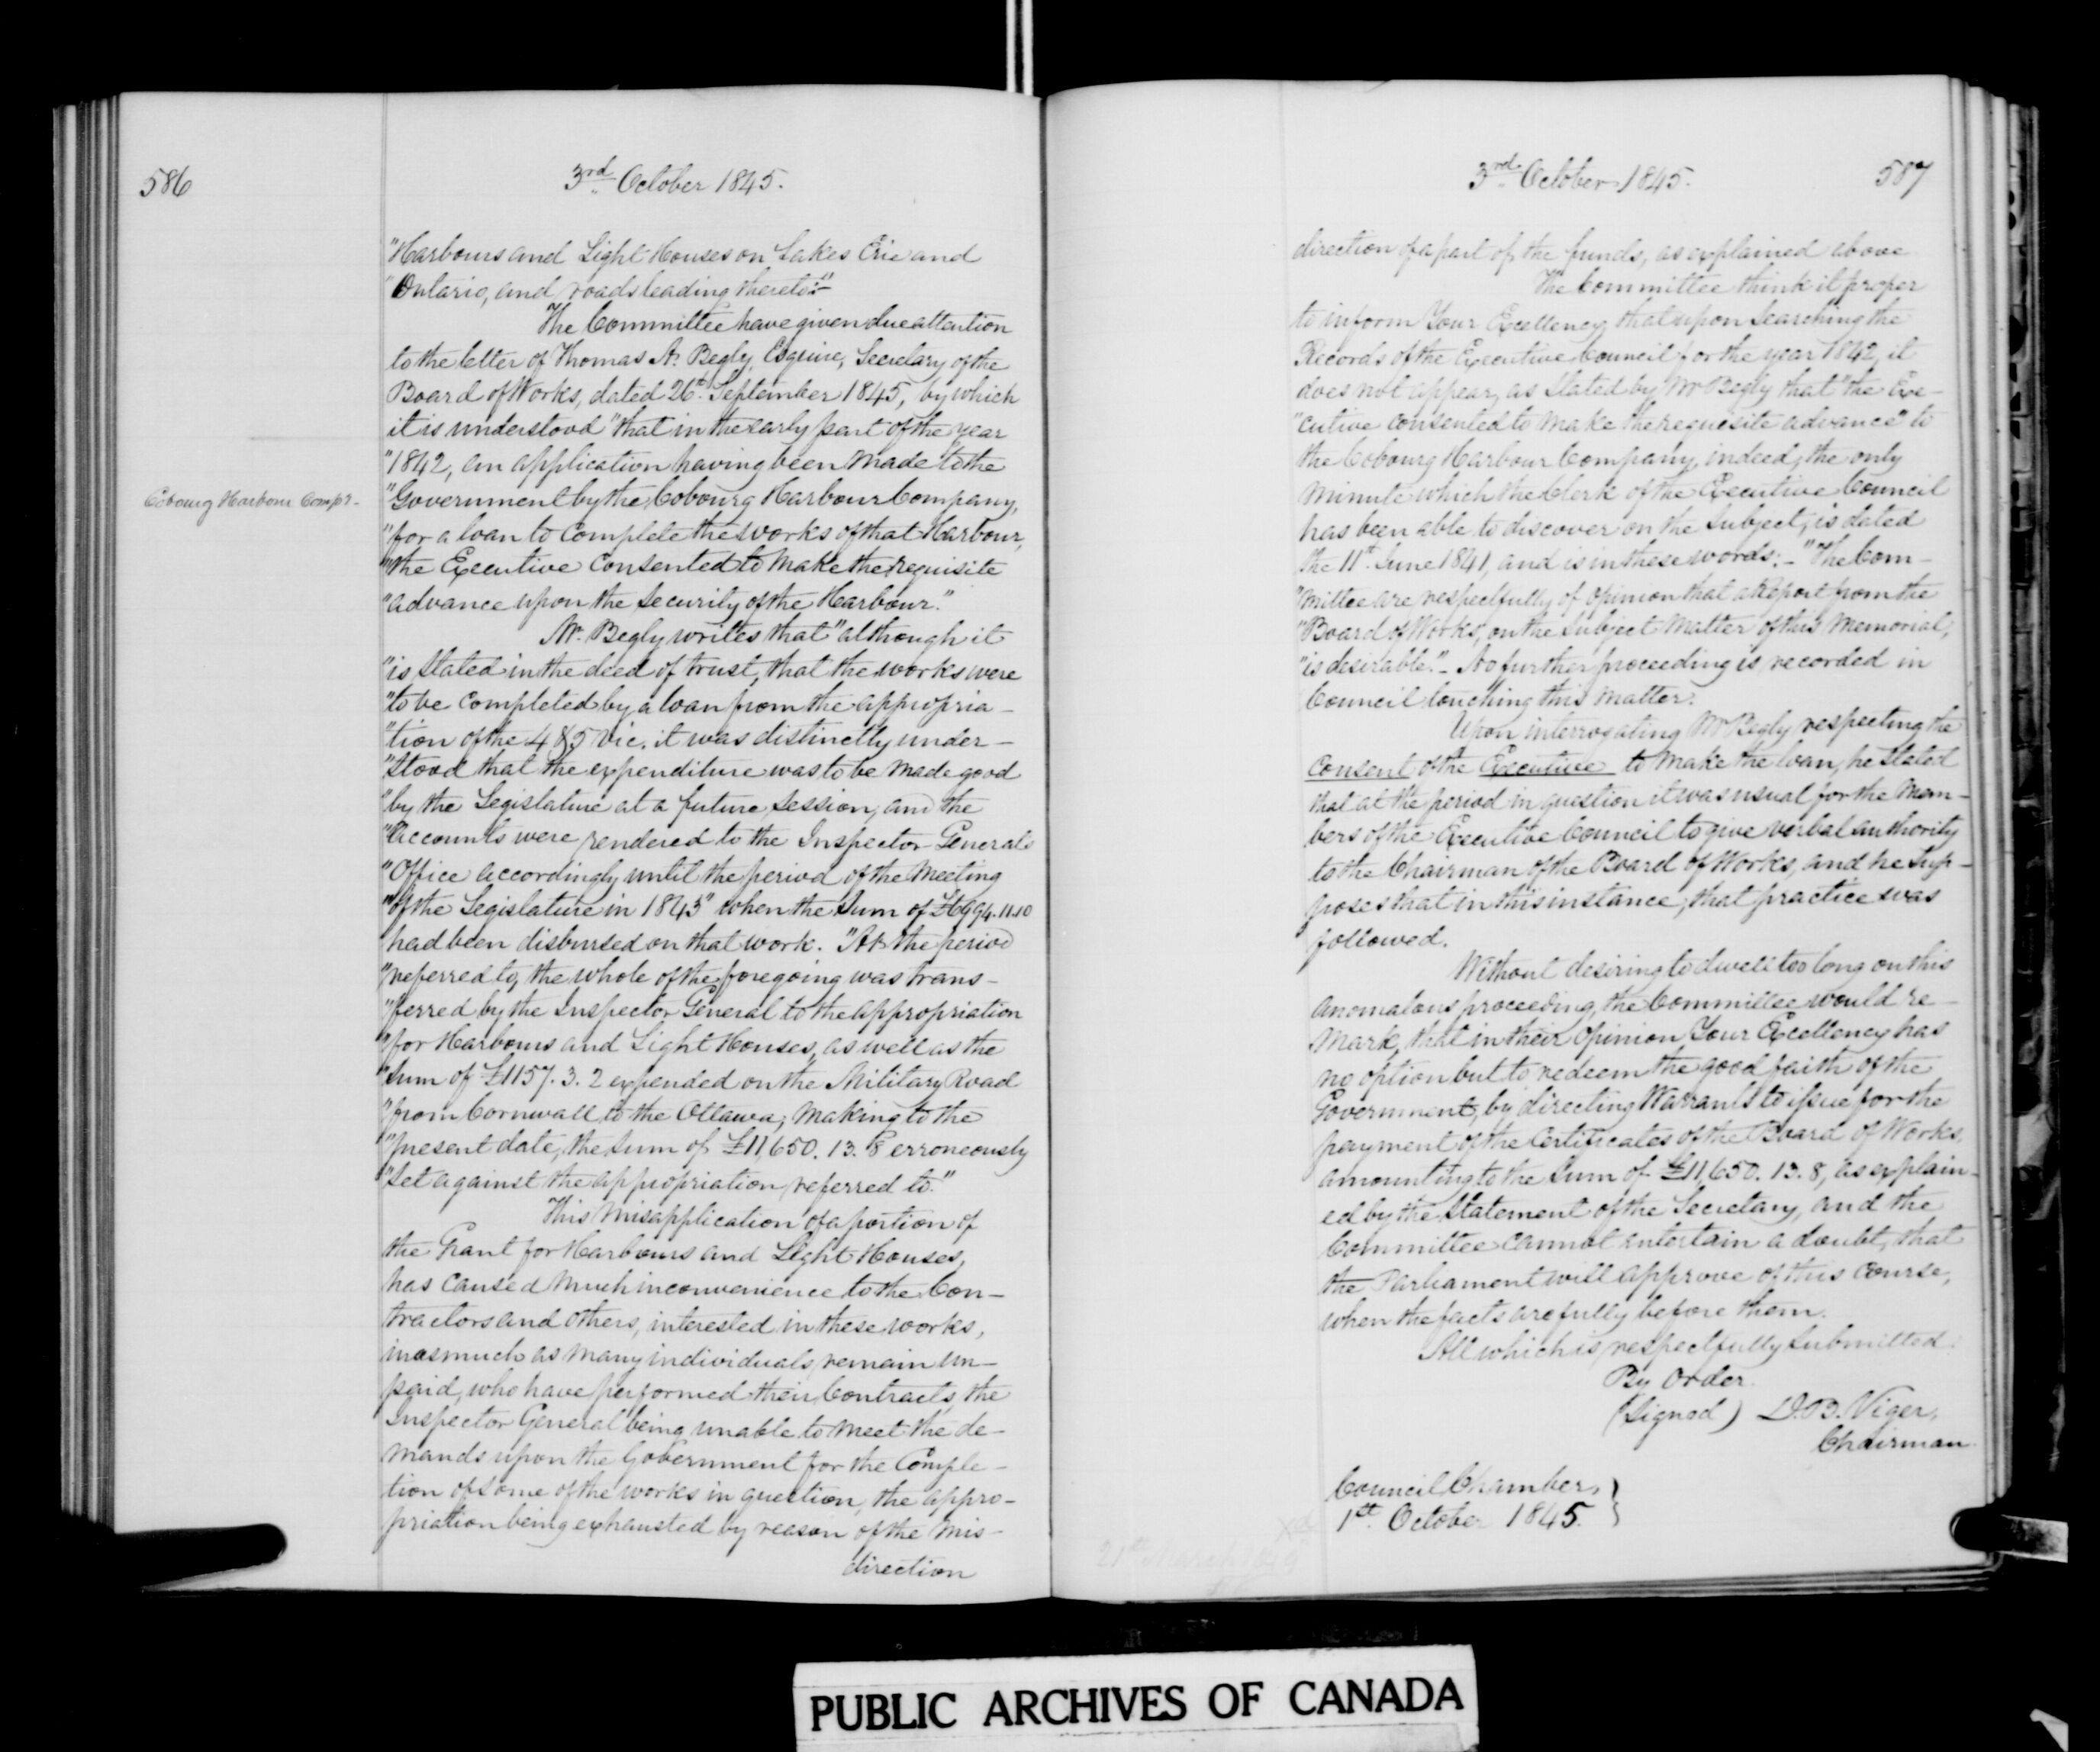 586
3rd October 1845.
Cobourg Harbour Compy.
"Harbours and Light Houses on Lakes Erie and
"Ontario, and roads leading thereto."
The Committee have given due attention
to the letter of Thomas A. Begly, Esquire, Secretary of the
Board of Works, dated 26th September 1845, by which
it is understood "that in the early part of the year
"1842, an application having been made to the
"Government by the Cobourg Harbour Company,
"for a loan to complete the works of that Harbour,
"the Executive consented to make the requisite
"advance upon the security of the Harbour."
Mr. Begly writes that "although it
"is stated in the deed of trust, that the works were
"to be completed by a loan from the appropria-
"tion of the 4 & 5 Vic. it was distinctly under-
"stood that the expenditure was to be made good
"by the Legislature at a future session, and the
"accounts were rendered to the Inspector Generals
"Office accordingly until the period of the meeting
"of the Legislature in 1843" when the sum of £6994.11.10
had been disbursed on that work. "At the period
"referred to, the whole of the foregoing was trans-
"ferred by the Inspector General to the appropriation
"for Harbours and Light Houses, as well as the
"sum of £1157. 3. 2 expended on the Military Road
"from Cornwall to the Ottawa; making to the
"present date, the sum of £11,650. 13. 8 erroneously
"set against the appropriation referred to."
This misapplication of a portion of
the Grant for Harbours and Light Houses,
has caused much inconvenience to the Con-
tractors and others, interested in these works,
inasmuch as many individuals remain un-
paid, who have performed their Contracts, the
Inspector General being unable to meet the de-
mands upon the Government for the Comple-
tion of some of the works in question, the appro-
priation being exhausted by reason of the mis-
direction
3rd October 1845.
587
direction of a part of the funds, as explained above
The Committee think it proper
to inform Your Excellency, that upon searching the
Records of the Executive Council for the year 1842, it
does not appear, as stated by Mr Begly that "the Exe-
"cutive consented to make the requisite advance" to
the Cobourg Harbour Company, indeed, the only
minute which the Clerk of the Executive Council
has been able to discover on the subject, is dated
the 11th June 1841, and is in these words: - "The Com-
"mittee are respectfully of opinion that a Report from the
"Board of Works, on the subject matter of this Memorial,
"is desirable." - No further proceeding is recorded in
Council touching this matter.
Upon interrogating Mr Begly respecting the
consent of the Executive to make the loan, he stated
that at the period in question it was usual for the Mem-
bers of the Executive Council to give verbal authority
to the Chairman of the Board of Works, and he sup-
poses that in this instance, that practice was
followed.
Without desiring to dwell too long on this
anomalous proceeding, the Committee would re-
mark, that in their opinion Your Excellency has
no option but to redeem the good faith of the
Government, by directing Warrants to issue for the
payment of the Certificates of the Board of Works,
amounting to the sum of £11,650. 13. 8, as explain-
ed by the statement of the Secretary, and the
Committee cannot entertain a doubt, that
the Parliament will approve of this course,
when the facts are fully before them.
All which is respectfully submitted
By Order.
(Signed) D. B. Viger,
Chairman
Council Chamber, }
1st October 1845. }
PUBLIC ARCHIVES OF CANADA